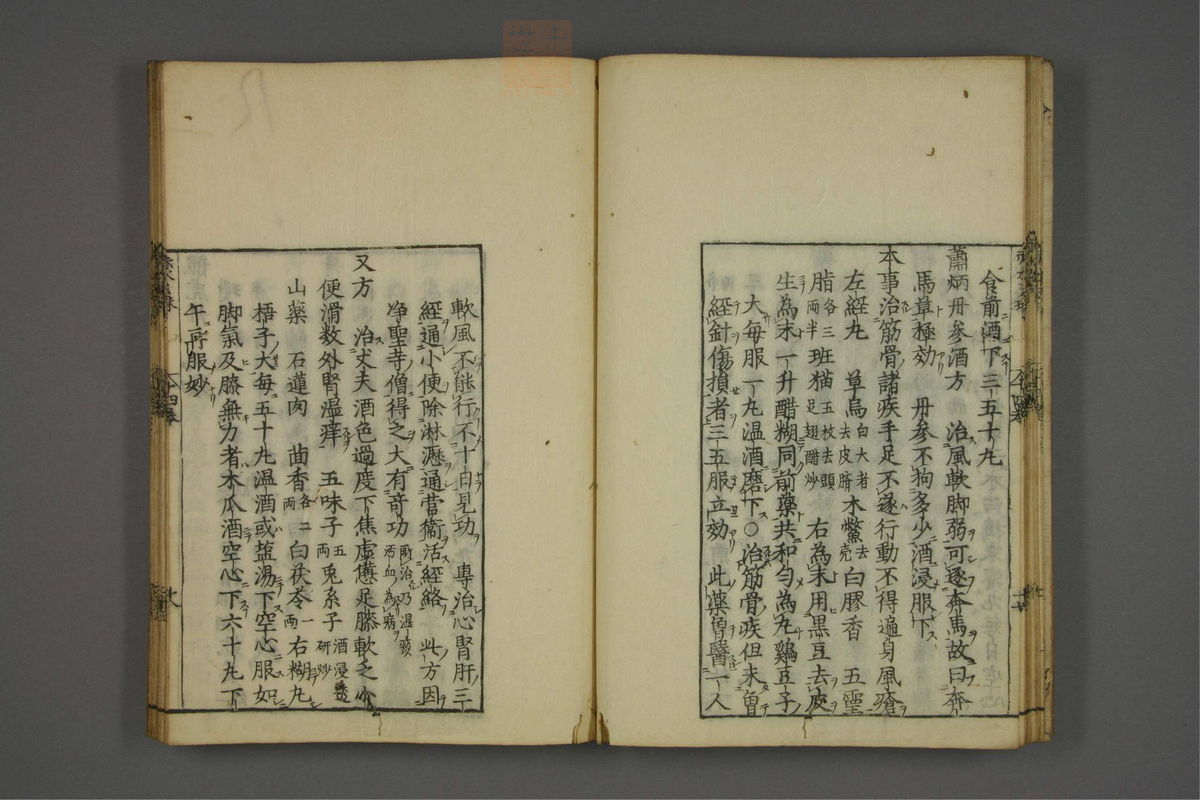 食前酒下三五十丸
蕭炳丹参酒方 治風軟脚弱可逐奔馬故曰奔
馬草極効 丹参不拘多少酒浸服下
本事治筋骨諸疾手足不遂行動不得遍身風瘡
左經丸 草烏白大者去皮臍 木鱉去壳 白膠香 五霊
脂各三両半 班猫五枚去頭足翅醋炒 右為末用黒豆去皮
生為末一升醋糊同前薬共和匀為丸鷄豆子
大毎服一丸温酒磨下〇治筋骨疾但未曽
經針傷損者三五服立効 此薬曽醫一人
軟風不能行不十日見功 專治心腎肝三
經通小便除淋瀝通営衛活經絡 此方因
净聖寺僧得之大有奇功 所治乃温痰汚血為病
又方 治丈夫酒色過度下焦虚憊足膝軟乏小
便滑数外腎湿痒 五味子五両 兎糸子酒浸研炒
山薬 石蓮肉 茴香各二両 白茯苓一両 右糊丸
梧子大毎五十丸温酒或塩湯下空心服如
脚氣及膝無力者木瓜酒空心下六十丸下
午再服妙